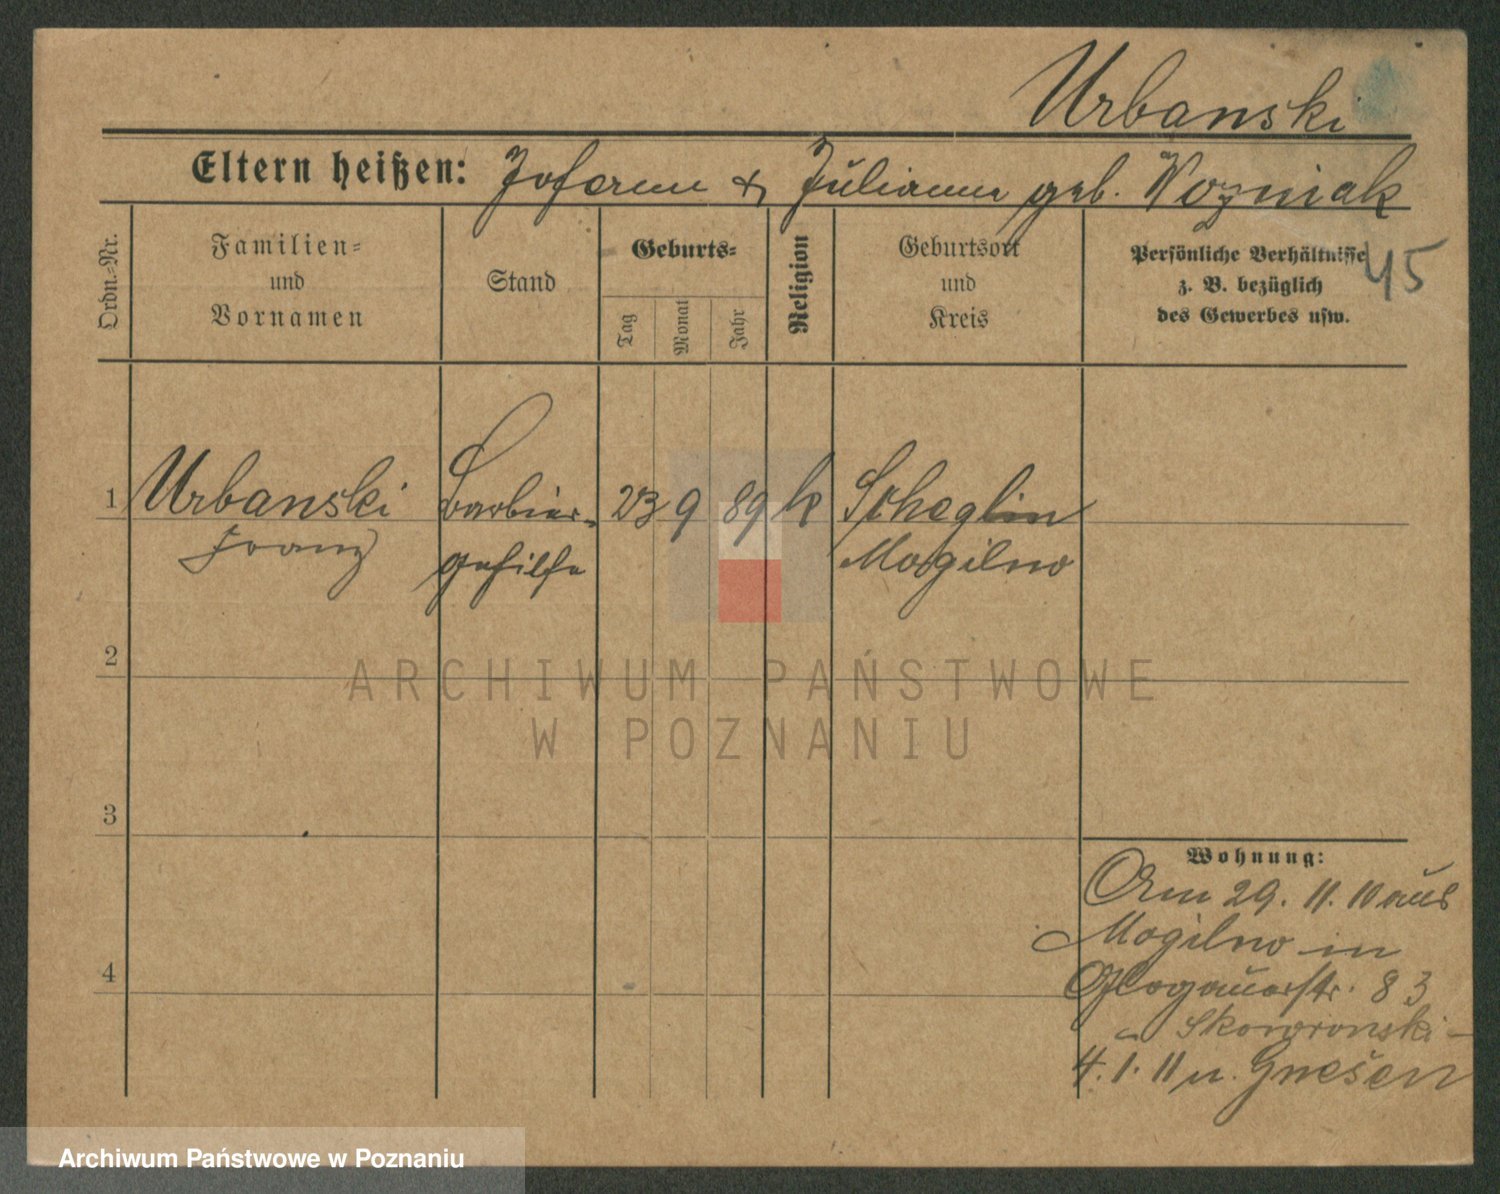 Urbanski
Eltern heißen: Johann & Julianna geb. Wozniak
45
Ordn.=Nr.
Familien=
und
Vornamen
Stand
Geburts=
Tag
Monat
Jahr
Religion
Geburtsort
und
Kreis
Persönliche Verhältnisse
z. B. bezüglich
des Gewerbes usw.
1 Urbanski Barbier- 23 9 89 k Scheglin
Franz gehilfe Mogilno
2
3
4
Wohnung:
Am 29. 11. 10 aus
Mogilno in
Glogauerstr. 83
Skowronski -
4. 1. 11 n. Gnesen
ARCHIWUM PAŃSTWOWE
W POZNANIU
Archiwum Państwowe w Poznaniu